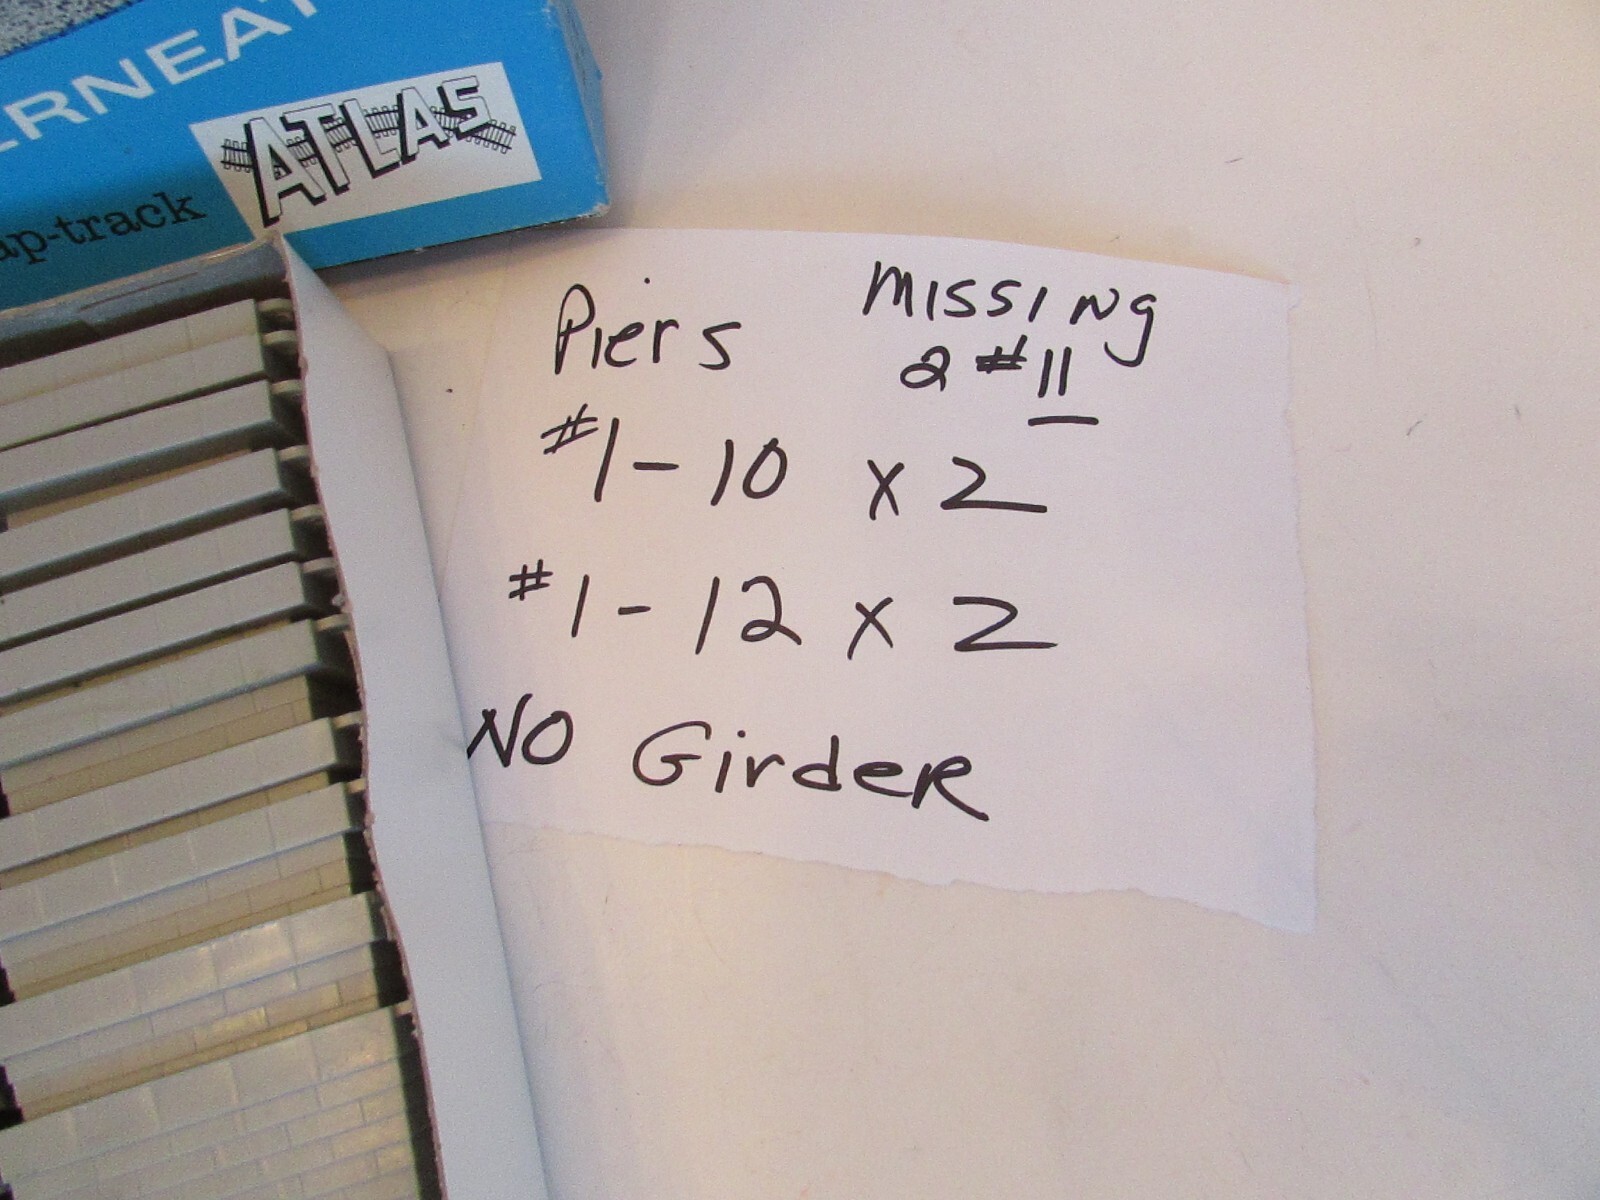 ATLAS
Piers
Missing
2 #11
#1-10 x 2
#1-12 x 2
NO GirdeR